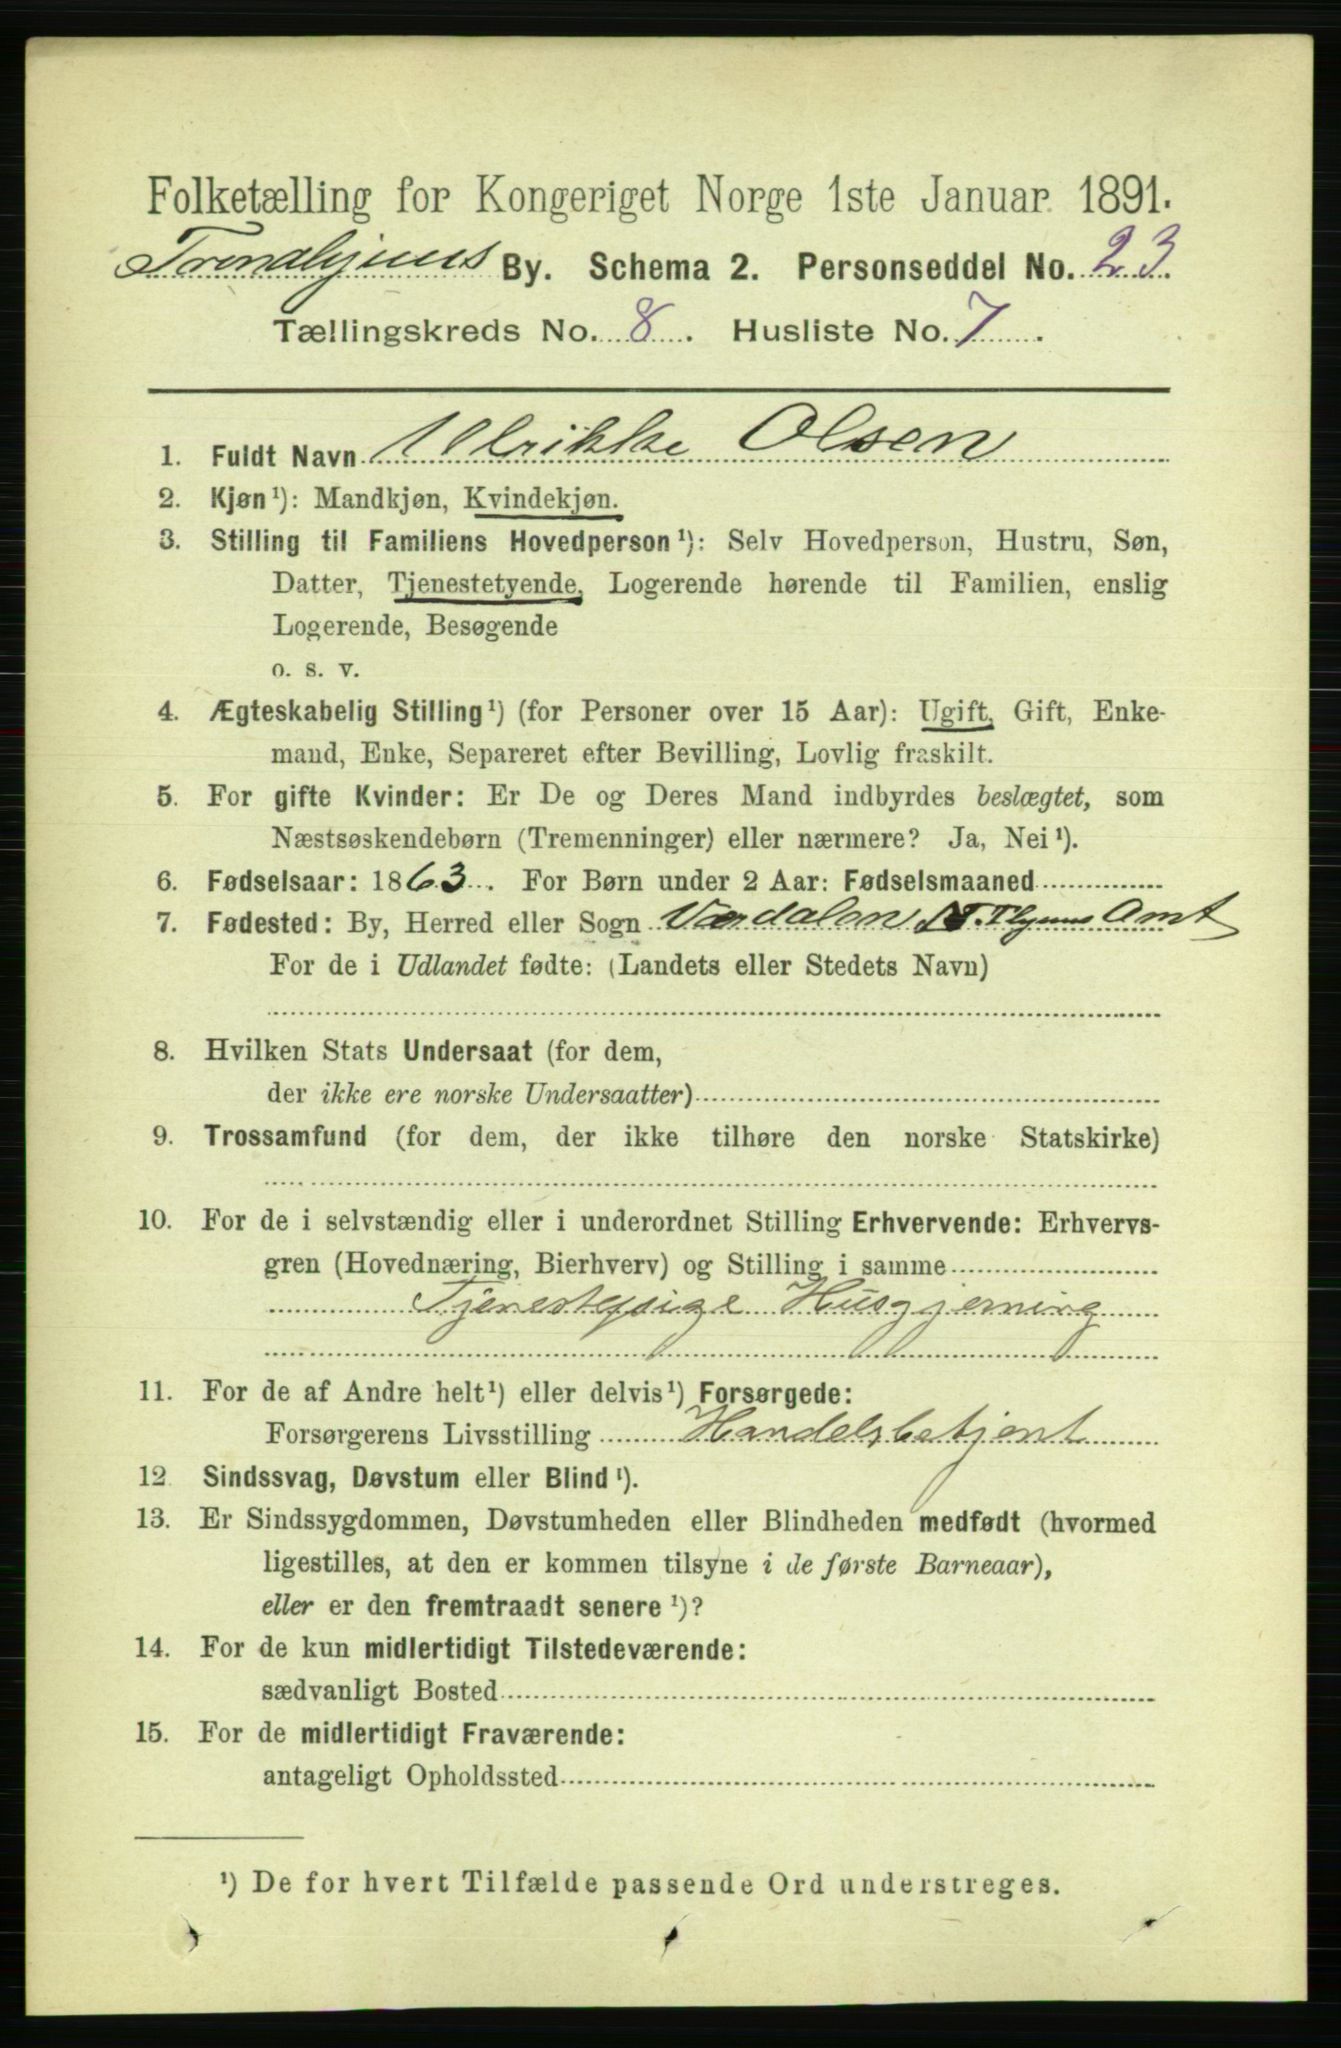 Folketælling for Kongeriget Norge 1ste Januar 1891.
Trondhjems By. Schema 2. Personseddel No. 23
Tællingskreds No. 8. Husliste No. 7.
1. Fuldt Navn Ulrikke Olsen
2. Kjøn¹): Mandkjøn, Kvindekjøn.
3. Stilling til Familiens Hovedperson¹): Selv Hovedperson, Hustru, Søn,
Datter, Tjenestetyende, Logerende hørende til Familien, enslig
Logerende, Besøgende
o. s. v.
4. Ægteskabelig Stilling¹) (for Personer over 15 Aar): Ugift, Gift, Enke-
mand, Enke, Separeret efter Bevilling, Lovlig fraskilt.
5. For gifte Kvinder: Er De og Deres Mand indbyrdes beslægtet, som
Næstsøskendebørn (Tremenninger) eller nærmere? Ja, Nei¹).
6. Fødselsaar: 1863. For Børn under 2 Aar: Fødselsmaaned
7. Fødested: By, Herred eller Sogn Værdalen N. Thjems Amt
For de i Udlandet fødte: (Landets eller Stedets Navn)
8. Hvilken Stats Undersaat (for dem,
der ikke ere norske Undersaatter)
9. Trossamfund (for dem, der ikke tilhøre den norske Statskirke)
10. For de i selvstændig eller i underordnet Stilling Erhvervende: Erhvervs-
gren (Hovednæring, Bierhverv) og Stilling i samme
Tjenestepige Husgjerning
11. For de af Andre helt¹) eller delvis¹) Forsørgede:
Forsørgerens Livsstilling Handelsbetjent
12 Sindssvag, Døvstum eller Blind¹).
13. Er Sindssygdommen, Døvstumheden eller Blindheden medfødt (hvormed
ligestilles, at den er kommen tilsyne i de første Barneaar),
eller er den fremtraadt senere¹)?
14. For de kun midlertidigt Tilstedeværende:
sædvanligt Bosted
15. For de midlertidigt Fraværende:
antageligt Opholdssted
¹) De for hvert Tilfælde passende Ord understreges.